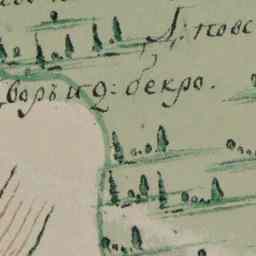 Д: повс
воръ и д: бекро.